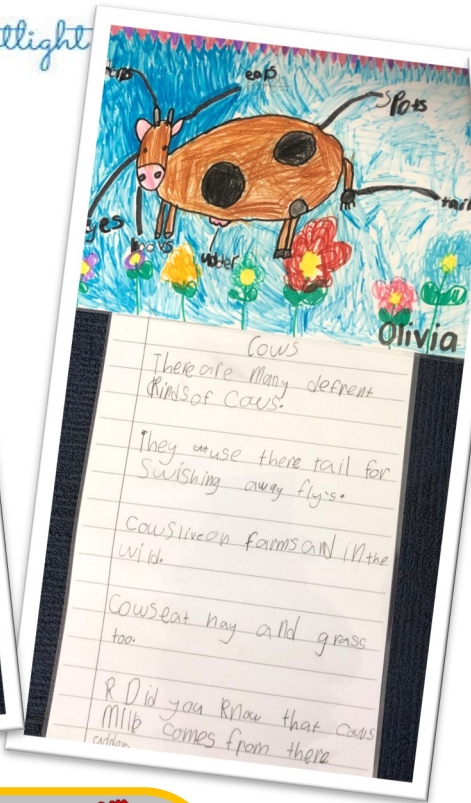 tlight
ears
spots
tail
hoovs
Uder
Olivia
Cows
There are Many defrent
Kinds of Cows.
They use there tail for
Swishing away fly's.
Cows live on farms and in the
wild.
Cows eat hay and grass
too.
R Did you know that cows
milk comes from there